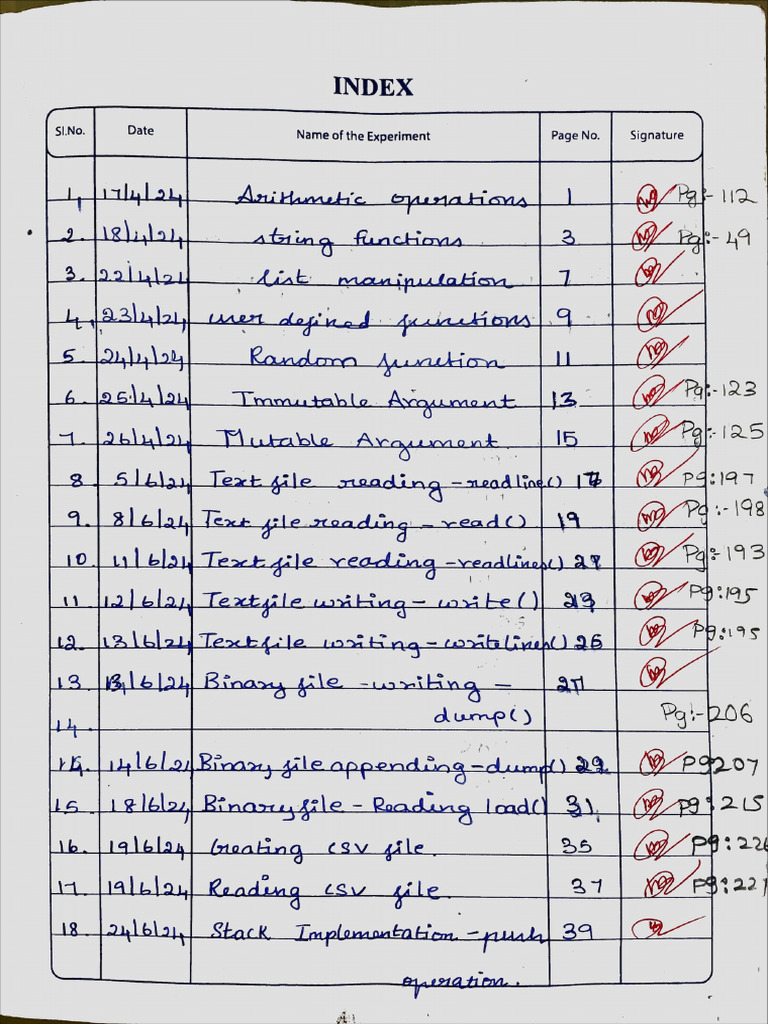 INDEX
Sl.No. Date Name of the Experiment Page No. Signature
1, 17/4/24 Arithmetic operations 1 Pg:-112
2. 18/4/24 string functions 3 Pg:-49
3. 22/4/24 list manipulation 7
4. 23/4/24 user defined functions 9
5. 24/4/24 Random function 11
6. 25/4/24 Immutable Argument 13 Pg:-123
7. 26/4/24 Mutable Argument 15 Pg:-125
8. 5/6/24 Text file reading -readline() Pg:197
9. 8/6/24 Text file reading - read() 19 Pg:-198
10. 11/6/24 Text file reading -readlines() Pg:-193
11. 12/6/24 Text file writing - write() 23 Pg:195
12. 13/6/24 Text file writing -writelines() 25 Pg:195
13. 13/6/24 Binary file -writing - 27
14. dump() Pg:-206
14. 14/6/24 Binary file appending-dump() 29 Pg207
15. 18/6/24 Binary file - Reading load() 31 Pg:215
16. 19/6/24 Creating CSV file. 35
17. 19/6/24 Reading CSV file. 37 Pg:221
18. 24/6/24 Stack Implementation -push 39
operation.